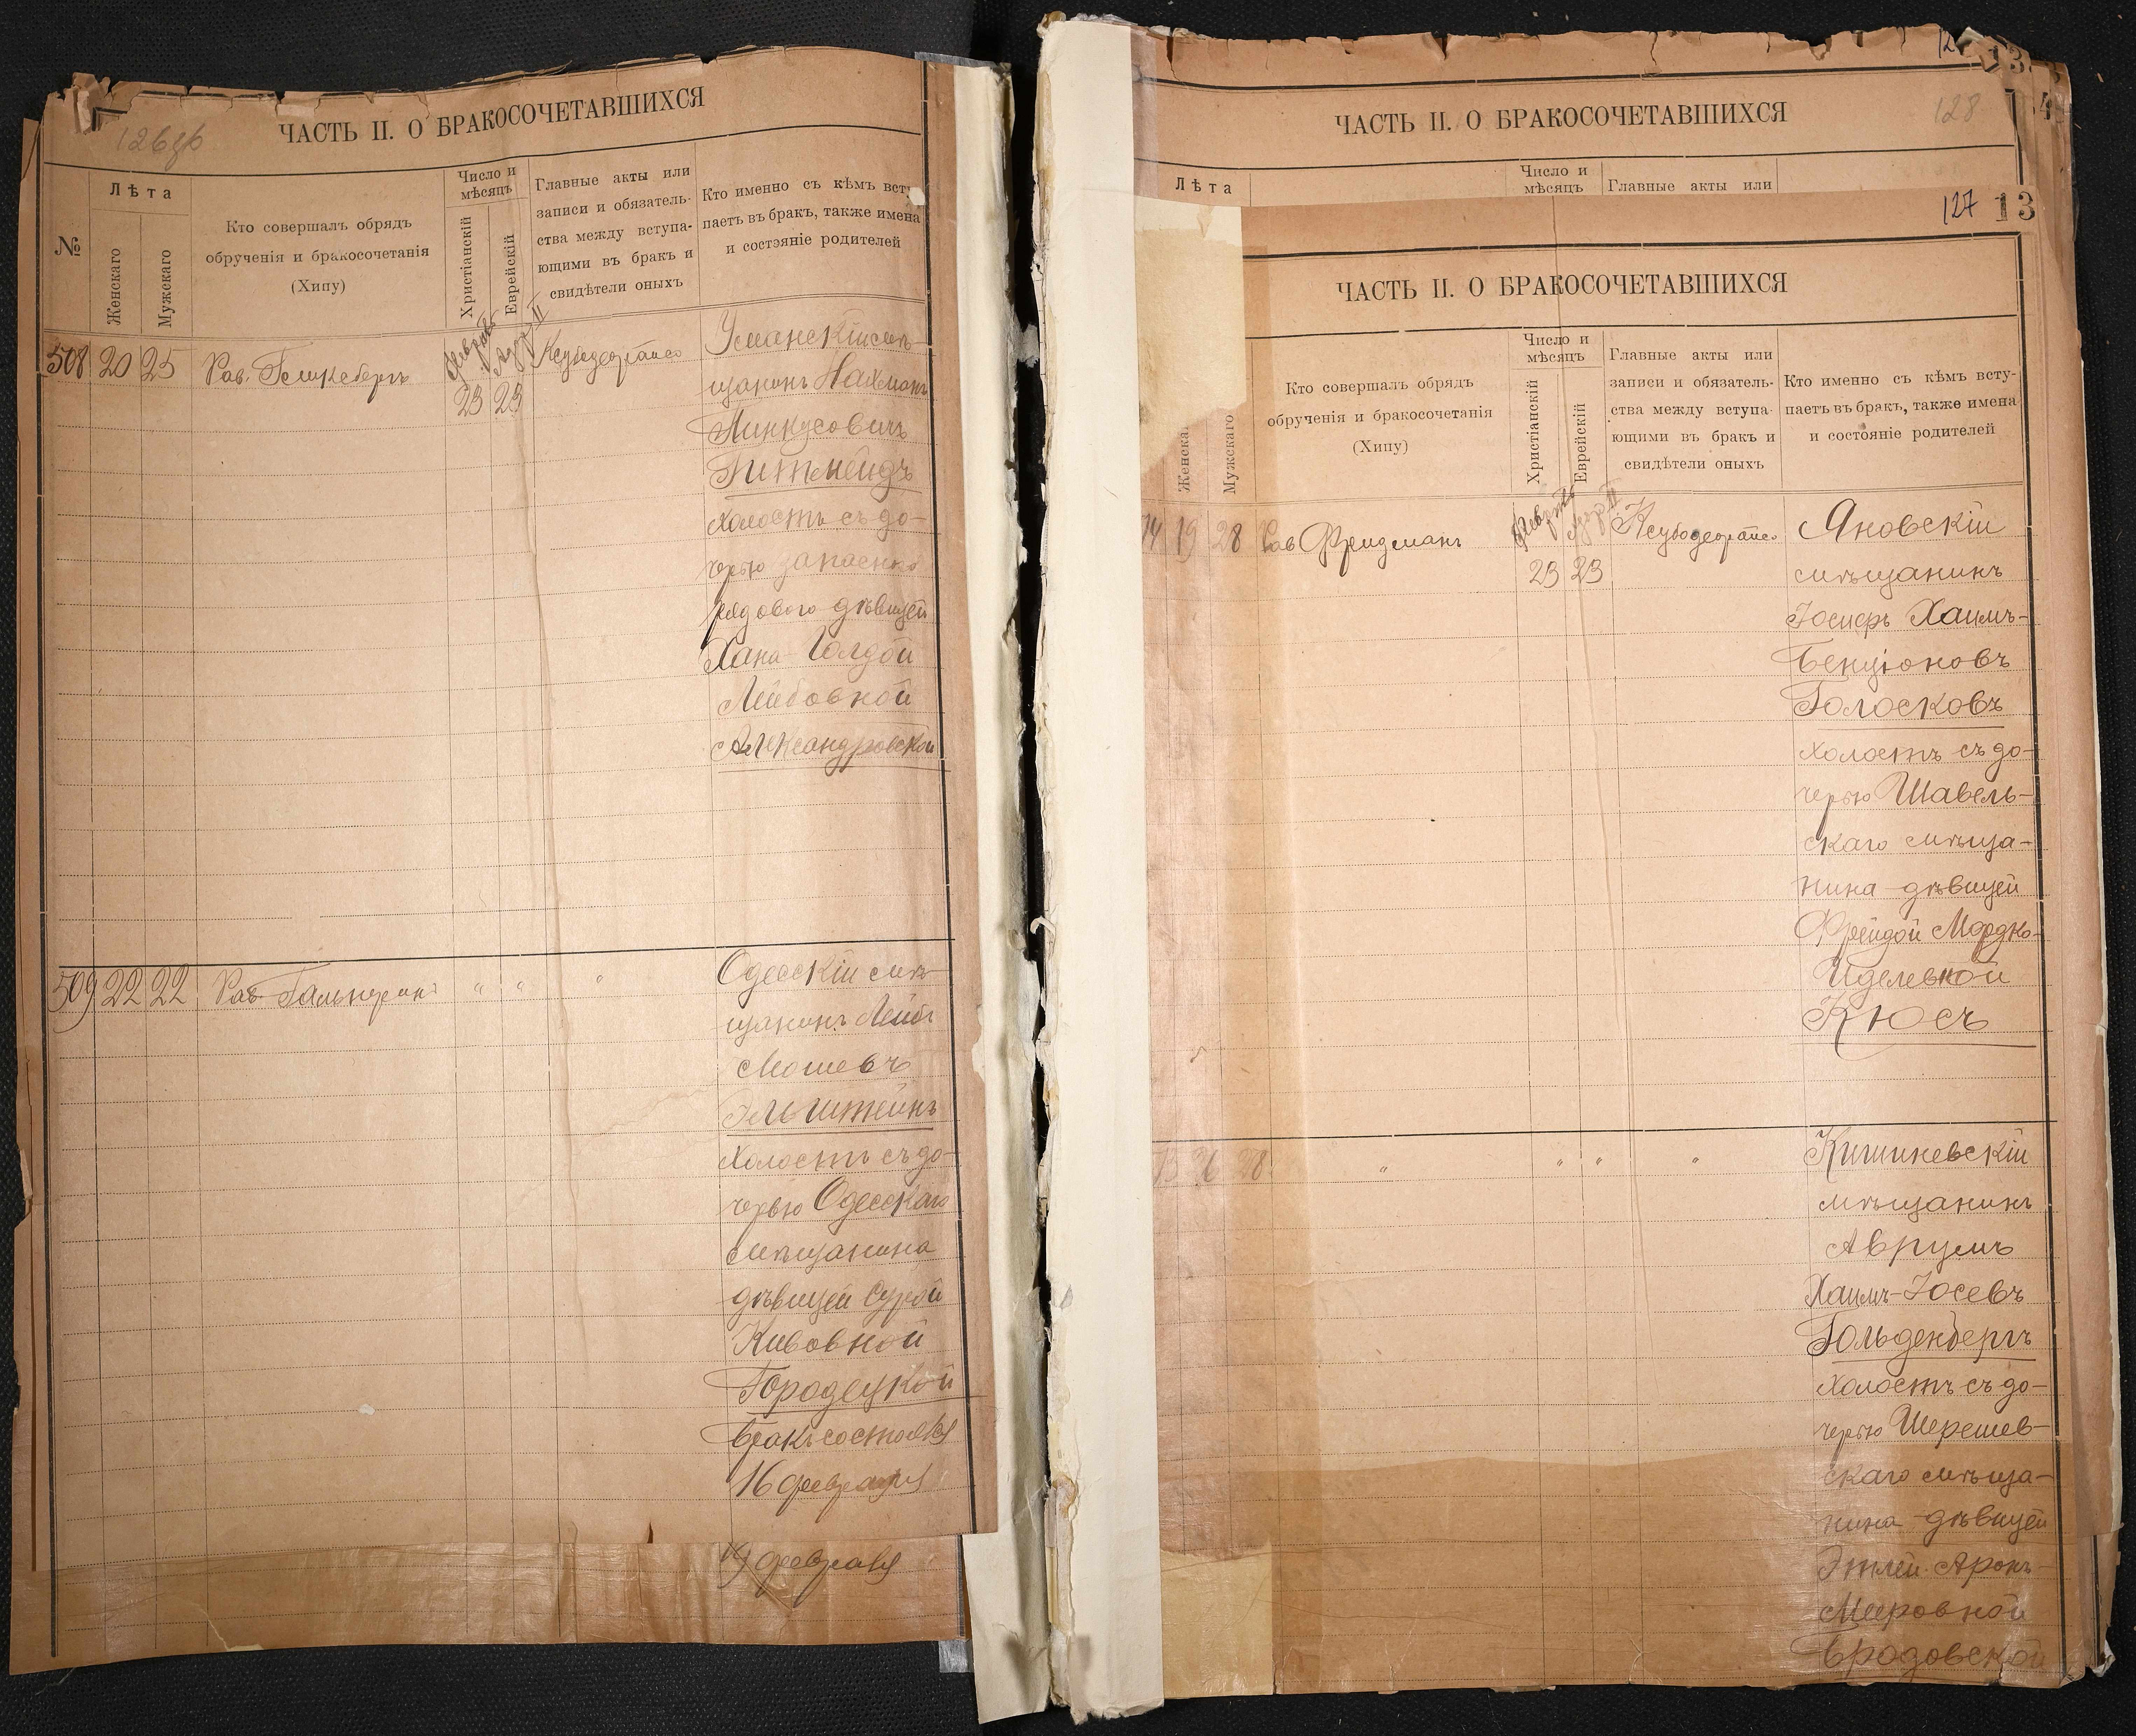 126об
ЧАСТЬ II. О БРАКОСОЧЕТАВШИХСЯ
№
Лѣта
Женскаго
Мужскаго
Кто совершалъ обрядъ
обрученія и бракосочетанія
(Хипу)
Число и
мѣсяцъ
Христіанскій
Еврейскій
Главные акты или
записи и обязатель-
ства между вступа-
ющими въ бракъ и
свидѣтели оныхъ
Кто именно съ кѣмъ всту
паетъ въ бракъ, также имена
и состояніе родителей
508 20 25
Февраль 23
Адаръ II 23
Уманскій мѣ-
щанинъ Нахманъ
Пинкусовичъ
холостъ съ до-
черью запаснаго
рядового дѣвицей
Хана-Голдой
Лейбовной
Александровской
509 22 22 " " "
Одесскій мѣ-
щанинъ Лейбъ
Мошевъ
Эльштейнъ
холостъ съ до-
черью Одесскаго
мѣщанина
дѣвицей Сурой
Кивовной
Городецкой
Бракъ состоялся
16 февраля
19 февраля
128
ЧАСТЬ II. О БРАКОСОЧЕТАВШИХСЯ
Лѣта
Число и
мѣсяцъ
Главные акты или
127 13
ЧАСТЬ II. О БРАКОСОЧЕТАВШИХСЯ
Женска
Мужскаго
Кто совершалъ обрядъ
обрученія и бракосочетанія
(Хипу)
Число и
мѣсяцъ
Христіанскій
Еврейскій
Главные акты или
записи и обязатель-
ства между вступа-
ющими въ бракъ и
свидѣтели оныхъ
Кто именно съ кѣмъ всту-
паетъ въ бракъ, также имена
и состояніе родителей
19 28 Рав Фридманъ
Февраль 23
Адаръ II 23
Яновскій
мѣщанинъ
Іосифъ Хаимъ-
Бенціоновъ
Голосковъ
холостъ съ до-
черью Шавель-
скаго мѣща-
нина дѣвицей
Фрейдой Мордко-
Иделевной
Кюсъ
28 " " " "
Кишиневскій
мѣщанинъ
Аврумъ
Хаимъ-Іосевъ
Гольденбергъ
холостъ съ до-
черью Шерешев-
скаго мѣща-
нина дѣвицей
Этлей Аронъ-
Мееровной
Бродовской